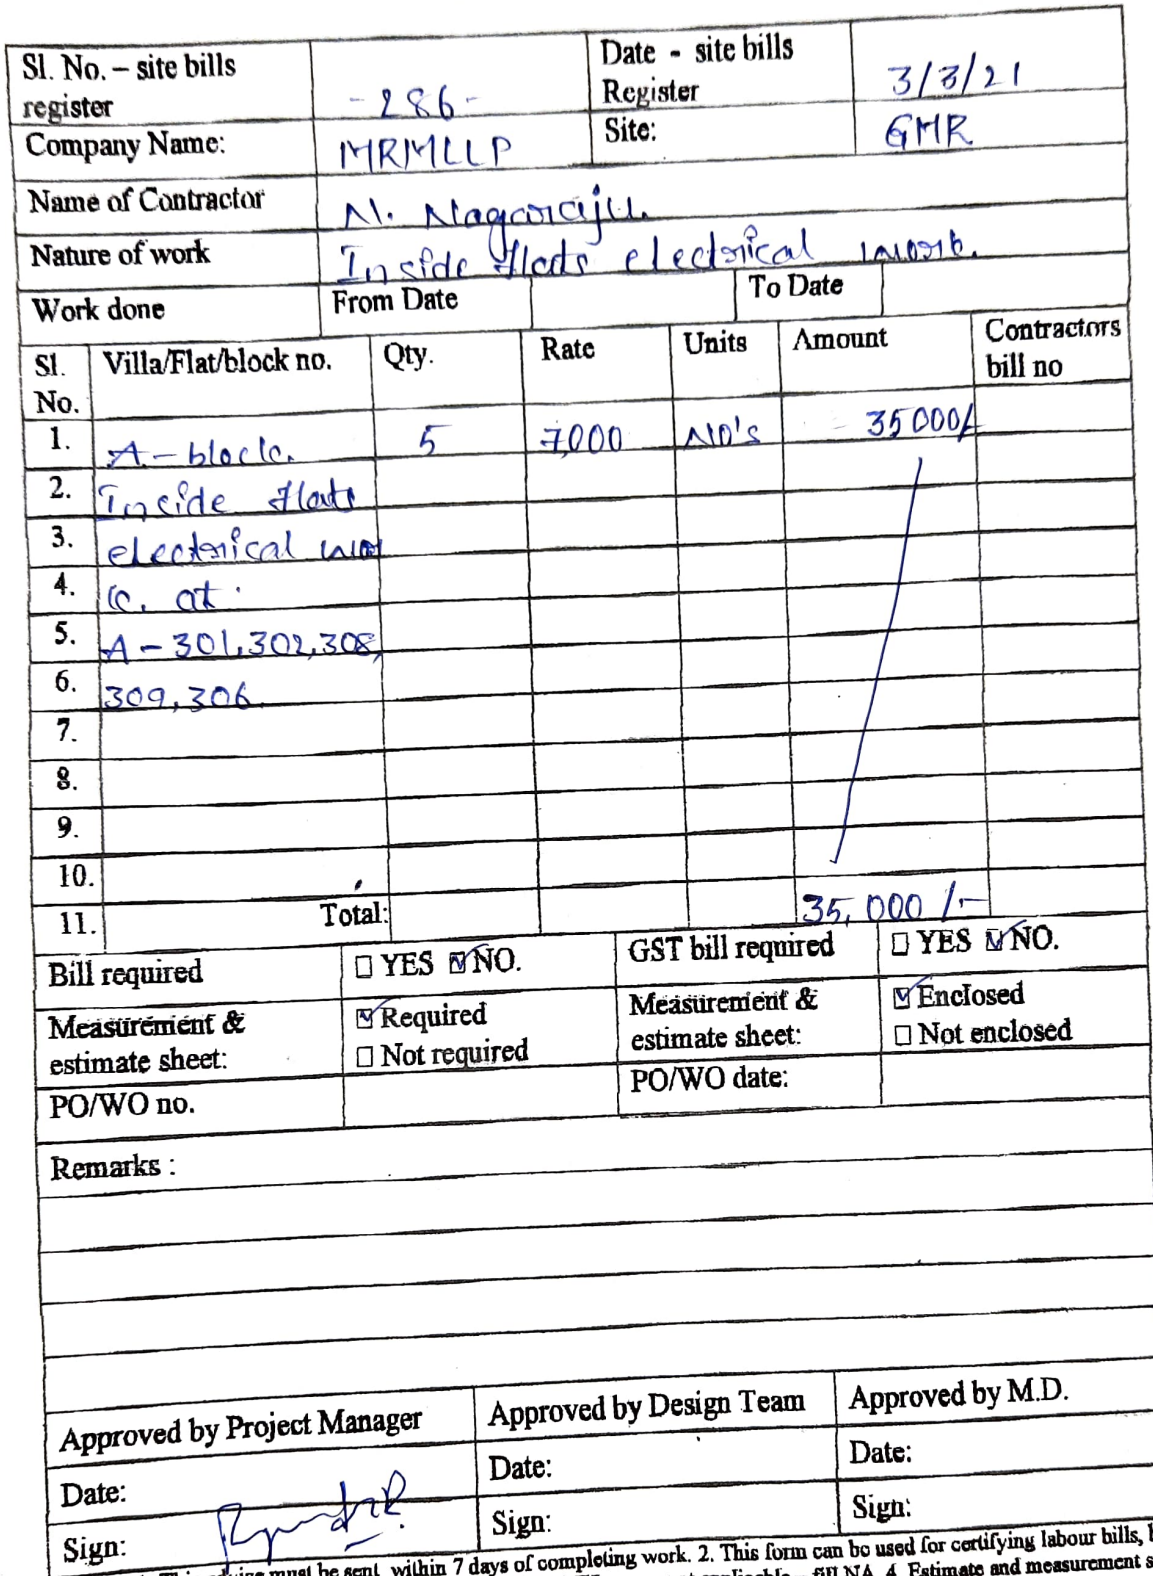 Sl. No. – site bills register - 286 - Date - site bills Register 3/3/21
Company Name: MRMLLP Site: GMR
Name of Contractor N. Nagaraju.
Nature of work Inside flats electrical work.
Work done From Date To Date
Sl. No. Villa/Flat/block no. Qty. Rate Units Amount Contractors bill no
1. A - block. 5 7,000 No's 35000/-
2. Inside flats
3. electrical wor
4. k. at
5. A - 301, 302, 308,
6. 309, 306.
7.
8.
9.
10.
11. Total: 35,000 /-
Bill required ☐ YES ☑ NO. GST bill required ☐ YES ☑ NO.
Measurement & estimate sheet: ☑ Required ☐ Not required Measurement & estimate sheet: ☑ Enclosed ☐ Not enclosed
PO/WO no. PO/WO date:
Remarks :
Approved by Project Manager Approved by Design Team Approved by M.D.
Date: Date: Date:
Sign: Sign: Sign:
must be sent within 7 days of completing work. 2. This form can be used for certifying labour bills,
fill NA. 4. Estimate and measurement